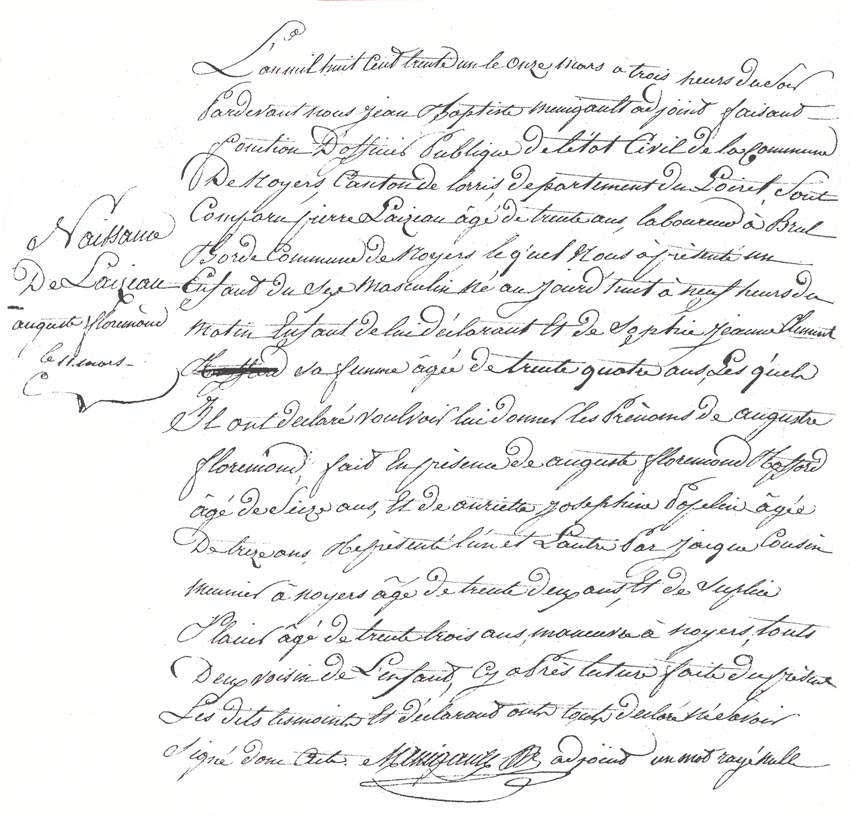 Naissance
De Laizeau
auguste floremond
le 11 mars
L'an mil huit Cent trente un le onze mars à trois heurs du Soir
Pardevant nous jean Baptiste menigault adjoint faisant
fonction D'officier Publique de l'état Civil de la Commune
De Noyers, Canton de lorris, departement du Loiret, Sont
Comparu pierre Laizeau âgé de trente ans, laboureur à Brul
Borde Commune de Noyers le quel Nous à présenté un
Enfant du Sexe Masculin Né au Jourd'huit à neuf heurs du
matin Enfant de lui déclarant Et de Sophie jeanne Clement
sa femme âgée de trente quatre ans, Les quels
Il ont déclaré voulvoir lui donner les Prénoms de augustre
floremond, fait En présence de auguste floremond
âgé de Seize ans, Et de anriete josephine Poselin âgée
De treze ans, Représenté l'un et L'autre Par Jacque Cousin
meunier à noyers âgé de trente deux ans, Et de Suplice
Plaisir âgé de trente trois ans, maneuvre à noyers, touts
Deux voisin de L'enfant, Cy après luture faite du présent
Les dits temoints Et déclarant onts touts déclaré Né Savoir
Signé donc Acte. Menigault adjoint un mot rayé nulle